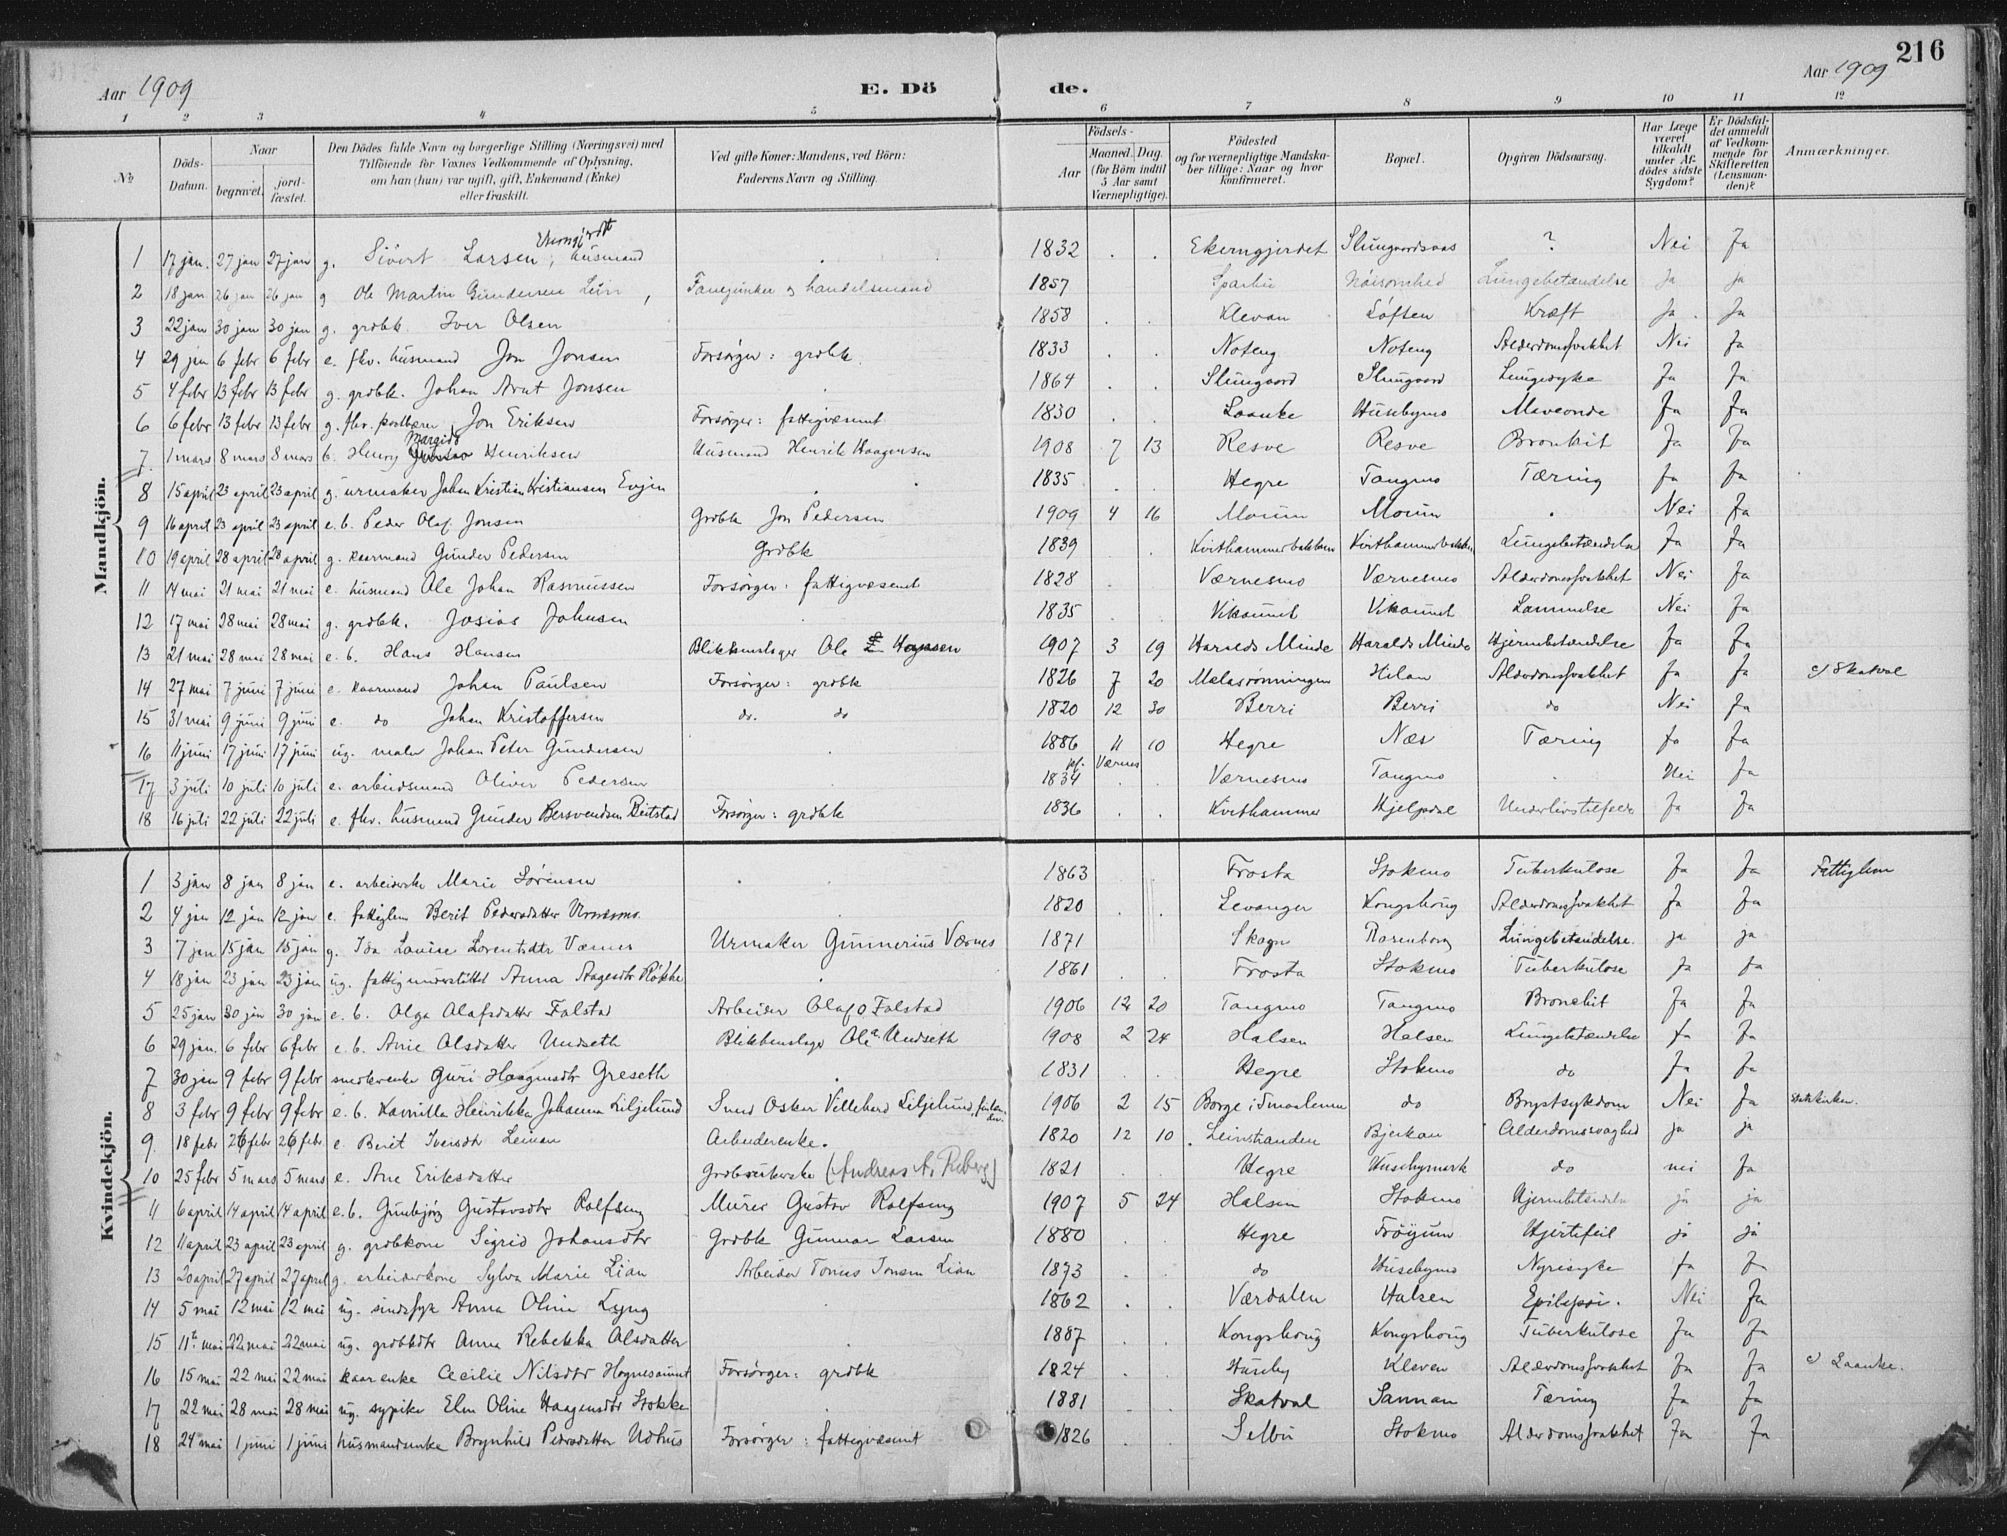 216
Aar 1909 E. Döde. Aar 1909
1 2 3 4 5 6 7 8 9 10 11 12
№ Döds-Datum. Naar begravet. jordfæstet. Den Dödes fulde Navn og borgerlige Stilling (Næringsvei) med Tilföiende for Voxnes Vedkommende af Oplysning, om han (hun) var ugift, gift, Enkemand (Enke) eller fraskilt. Ved gifte Koner: Mandens, ved Börn: Faderens Navn og Stilling. Födsels- Aar Maaned. Dag. (for Börn indtil 5 Aar samt Værnepligtige). Födested og for værnepligtige Mandskaber tillige: Naar og hvor konfirmeret. Bopæl. Opgiven Dödsaarsag. Har Læge været tilkaldt under Afdödes sidste Sygdom? Er Dödsfaldet anmeldt af Vedkommende for Skifteretten (Lensmanden)? Anmærkninger.
Mandkjön.
1 17 jan. 27 jan 27 jan g. Sivert Larsen, husmand 1832 . . Ekerngjerdet ? Nei Ja
2 18 jan 26 jan 26 jan g Ole Martin Gundersen , Fanejunker og handelsmand 1857 Lungebetændelse Ja ja
3 22 jan 30 jan 30 jan g. grdbk. Iver Olsen 1858 . . Klevan Løften Kræft Ja. Ja
4 29 jan 6 febr 6 febr e. fhv. husmand Jon Jonsen Forsørger: grdbk. 1833 . . Noteng Noteng Alderdomssvakhet Nei Ja
5 4 febr 13 febr 13 febr g. grdbk. Johan Arnt Jonsen 1864 . . Slungaard Slungaard Lungesyke Ja Ja
6 6 febr 13 febr 13 febr g. fhv. postbærer Jon Eriksen Forsørger: fattigvæsenet 1830 . . Laanke Husebymo Maveonde Ja Ja
Margido
7. 1 mars 8 mars 8 mars b. Henry Henriksen Husmand Henrik Haagensen 1908 7 13 Resve Resve Bronkit Ja Ja
8 15 april 23 april 23 april g. urmaker Johan Kristian Kristiansen Evjen 1835 . . Hegre Tangmo Tæring Ja Ja
9 16 april 23 april 23 april e. b. Peder Olaf Jonsen Grdbk Jon Pedersen 1909 4 16 . Nei Ja
10 19 april 28 april 28 april g. kaarmand Gunder Pedersen Grdbk 1839 . . Kvithammerbakken Kvithammerbakken Lungebetændelse Ja Ja
11 14 mai 21 mai 21 mai e. husmand Ole Johan Rasmussen Forsørger: fattigvæsenet 1828 . Værnesmo Værnesmo Alderdomssvakhet Nei Ja
12 17 mai 28 mai 28 mai g. grdbk. Josias Johnsen 1835 Vikaunet Vikaunet Lammelse Nei Ja
13 21 mai 28 mai 28 mai e. b. Hans Hansen Blikkenslager Ole 1907 3 19 Haralds Minde Haralds Minde Hjernebetændelse Ja Ja
14 27 mai 7 juni 7 juni e. kaarmand Johan Paulsen Forsørger: grdbk 1826 7 20 Melasrønningen Hilan Alderdomssvakhet Ja Ja c/ Skatval
15 31 mai 9 juni 9 juni e. do Johan Kristoffersen do. do 1820 12 30 Berri Berri do Nei Ja
16 11 juni 17 juni 17 juni ug. maler Johan Peter Gundersen 1886 11 10 Hegre Næs Tæring Ja Ja
Værnes
17 3 juli 10 juli 10 juli e. arbeidsmand Oliver Pedersen 1834 . . Værnesmo Tangmo . Nei Ja
18 16 juli 22 juli 22 juli e. fhv. husmand Gunder Bersvendsen Forsørger: grdbk 1836 . . Kvithammer Hjelpdal Ja Ja
Kvindekjön.
1 3 jan 8 jan 8 jan e. arbeiderske Marie Sørensen 1863 Frosta Stokmo Tuberkulose Ja Ja Fattiglem
2 4 jan 12 jan 12 jan e. fattiglem Berit Pedersdatter 1820 . . Levanger Kongshaug Alderdomssvakhet Ja Ja
3 7 jan 15 jan 15 jan g. Ida Louise Lorentsdtr Værnes Urmaker Gunnerius Værnes 1871 Skogn Rosenborg Lungebetændelse. ja ja
4 18 jan 23 jan 23 jan ug. fattigunderstøttet Anna Aagesdtr Røkke 1861 . . Frosta Stokmo Tuberkulose Ja Ja
5 25 jan 30 jan 30 jan e. b. Olga Olafsdatter Falstad Arbeider Olaf O. Falstad 1906 12 20 Tangmo Tangmo Bronchit Ja Ja
6 29 jan. 6 febr 6 febr e. b. Arne Olsdatter Undseth Blikkenslager Ole Undseth 1908 2 24 Halsen Halsen Lungebetændelse Ja Ja
7 30 jan 9 febr 9 febr smedkenke Guri Haagensdtr Greseth . 1831 . . Hegre Stokmo do Ja Ja
8 3 febr 9 febr 9 febr e. b. Kamilla Henrikka Johanna Liljelund Smed Oskar Villehard Liljelund, 1906 2 15 Borge i Smaalenene do Brystsykdom Nei Ja
9. 18 febr 26 febr 26 febr e. Berit Iversdtr Leinan Arbeiderenke. 1820 12 10 Leinstranden Bjerkan Alderdomssvaghed ja ja
10 25 febr 5 mars 5 mars e. Ane Eriksdatter (Andreas A. Reberg) 1821 . . Hegre Husebymark do nei Ja
11 6 april 14 april 14 april e. b. Gunbjørg Gustavsdtr Rolfseng Murer Gustav Rolfseng 1907 5 24 Halsen Stokmo Hjernebetændelse ja ja
12 11 april 23 april 23 april g. grdbkone Sigrid Johansdtr Grdbk Gunnar Larsen 1880 . . Hegre Frøyum Hjertefeil ja ja
13 20 april 27 april 27 april g. arbeiderkone Sylva Marie Lian Arbeider Tomas Jonsen Lian 1873 . . do Husebymo Nyresyke Ja Ja
14 5 mai 12 mai 12 mai ug. sindssyk Anna Oline Lyng 1862 . . Værdalen Halsen Epilepsi. Nei Ja
15 11te mai 22 mai 22 mai ug. grdbkdtr Anna Rebekka Olsdatter 1887 . . Kongshaug Kongshaug Tuberkulose Ja Ja
16 15 mai 22 mai 22 mai kaarenke Cecilie Nilsdtr Hognesaunet Forsørger: grdbk 1824 . . Huseby Kleven Alderdomssvakhet Ja Ja c/ Laanke.
17 22 mai 28 mai 28 mai ug. sypike Elen Oline Haagensdtr Stokke 1881 . . Skatval Sannan Tæring Ja Ja
18 24 mai 1 juni 1 juni husmandsenke Brynhild Pedersdatter Udhus Forsørger: fattigvæsenet 1826 . . Selbu Stokmo Alderdomssvakhet Ja Ja